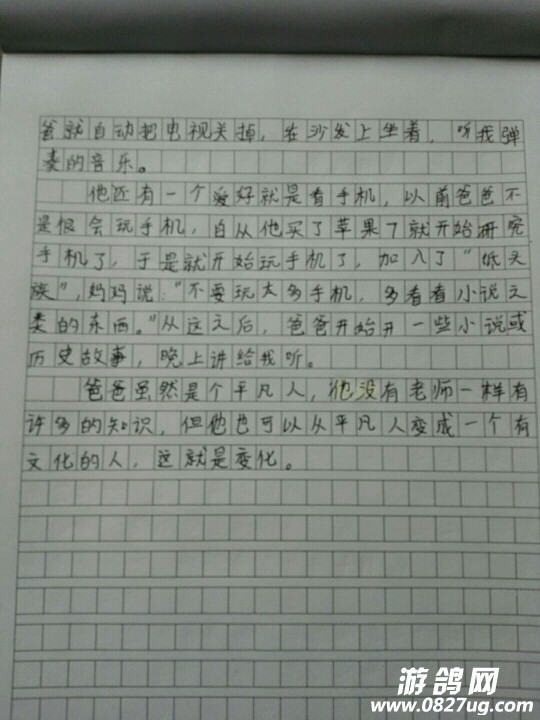 爸就自动把电视关掉，在沙发上坐着，听我弹
奏的音乐。
他还有一个爱好就是看手机，以前爸爸不
是很会玩手机，自从他买了苹果7就开始研究
手机了，于是就开始玩手机了，加入了“低头
族”，妈妈说：“不要玩太多手机，多看看小说之
类的东西。”从这之后，爸爸开始开一些小说或
历史故事，晚上讲给我听。
爸爸虽然是个平凡人，他没有老师一样有
许多的知识，但他也可以从平凡人变成一个有
文化的人，这就是变化。
游鸽网
www.0827ug.com